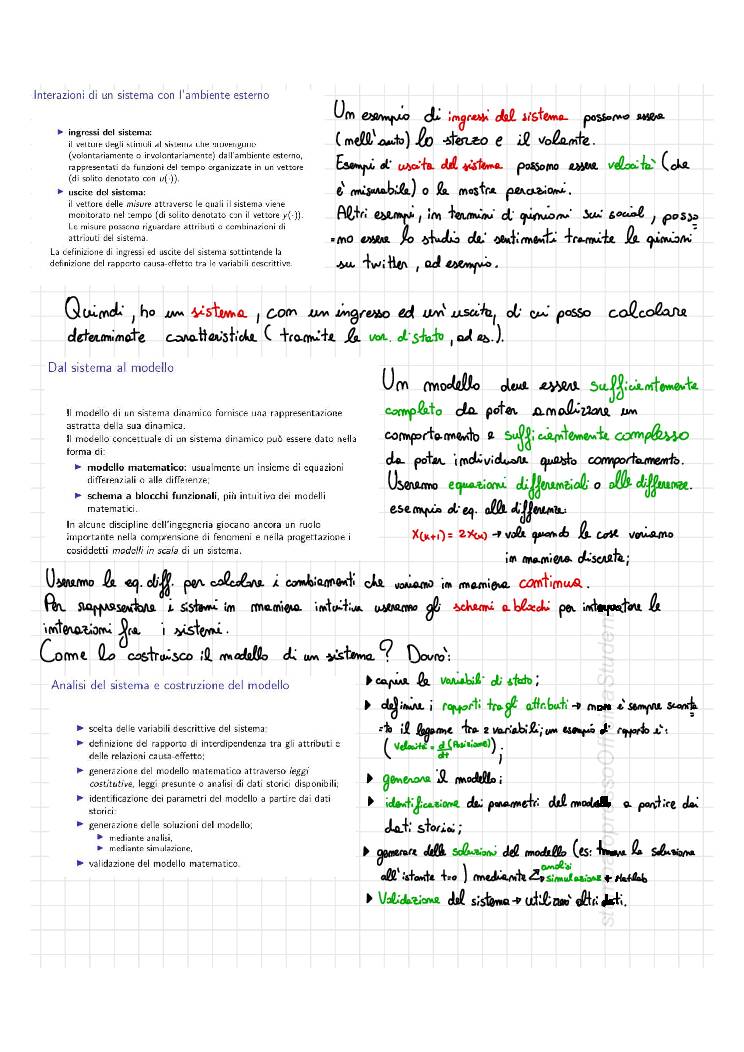 Interazioni di un sistema con l'ambiente esterno
▶ ingressi del sistema:
il vettore degli stimoli al sistema che provengono
(volontariamente o involontariamente) dall'ambiente esterno,
rappresentati da funzioni del tempo organizzate in un vettore
(di solito denotato con u(·)).
▶ uscite del sistema:
il vettore delle misure attraverso le quali il sistema viene
monitorato nel tempo (di solito denotato con il vettore y(·)).
Le misure possono riguardare attributi o combinazioni di
attributi del sistema.
La definizione di ingressi ed uscite del sistema sottintende la
definizione del rapporto causa-effetto tra le variabili descrittive.
Un esempio di ingressi del sistema possono essere
(nell'auto) lo sterzo e il volante.
Esempi di uscita del sistema possono essere velocità (che
è misurabile) o le nostre percezioni.
Altri esempi, in termini di opinioni sui social, posso
=no essere lo studio dei sentimenti tramite le opinioni
su twitter, ad esempio.
Quindi, ho un sistema, con un ingresso ed un'uscita, di cui posso calcolare
determinate caratteristiche (tramite le var. di stato, ad es.).
Dal sistema al modello
Il modello di un sistema dinamico fornisce una rappresentazione
astratta della sua dinamica.
Il modello concettuale di un sistema dinamico può essere dato nella
forma di:
▶ modello matematico: usualmente un insieme di equazioni
differenziali o alle differenze;
▶ schema a blocchi funzionali, più intuitivo dei modelli
matematici.
In alcune discipline dell'ingegneria giocano ancora un ruolo
importante nella comprensione di fenomeni e nella progettazione i
cosiddetti modelli in scala di un sistema.
Un modello deve essere sufficientemente
completo da poter analizzare un
comportamento e sufficientemente complesso
da poter individuare questo comportamento.
Useremo equazioni differenziali o alle differenze.
esempio di eq. alle differenze:
X(k+1) = 2X(k) → vale quando le cose variano
in maniera discreta;
Useremo le eq. diff. per calcolare i cambiamenti che variano in maniera continua.
Per rappresentare i sistemi in maniera intuitiva useremo gli schemi a blocchi per interpretare le
interazioni fra i sistemi.
Come lo costruisco il modello di un sistema? Dovrò:
Analisi del sistema e costruzione del modello
▶ scelta delle variabili descrittive del sistema;
▶ definizione del rapporto di interdipendenza tra gli attributi e
delle relazioni causa-effetto;
▶ generazione del modello matematico attraverso leggi
costitutive, leggi presunte o analisi di dati storici disponibili;
▶ identificazione dei parametri del modello a partire dai dati
storici;
▶ generazione delle soluzioni del modello;
▶ mediante analisi,
▶ mediante simulazione,
▶ validazione del modello matematico.
▶ capire le variabili di stato;
▶ definire i rapporti tra gli attributi → non è sempre sconta
=to il legame tra 2 variabili; un esempio di rapporto è:
(velocità = d/dt (Posizione));
▶ generare il modello;
▶ identificazione dei parametri del modello a partire dai
dati storici;
▶ generare delle soluzioni del modello (es: trovare la soluzione
all'istante t=0) mediante analisi
simulazione → Matlab
▶ Validazione del sistema → utilizzo altri dati.